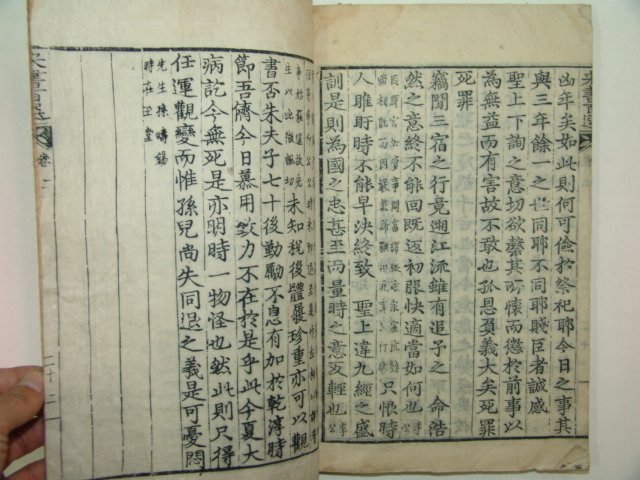 凶年矣如此則何可倫於祭祀耶今日之事其
與三年餘一之世同耶不同耶賤臣者誠感
聖上下詢之意切欲罄其所懷而懲於前事以
為無益而有害故不敢也孤恩負義大矣死罪
死罪
竊聞三宿之行竟遡江流雖有追予之命浩
然之意終不能回旣返初服快適當如何也
只恨時
人睢盱時不能早決終致 聖上違九經之盛
訓是則為國之忠甚至而量時之意反輕也
未知稅後體履珍重亦可以觀
書否朱夫子七十後勤勵不息有加於乾淳時
節吾儕今日慕用致力不在於是乎此今夏大
病訖今無死是亦明時一物怪也然此則只得
任運觀變而惟孫兒尚失同退之義是可憂悶
時在玉堂
卷一
二十二